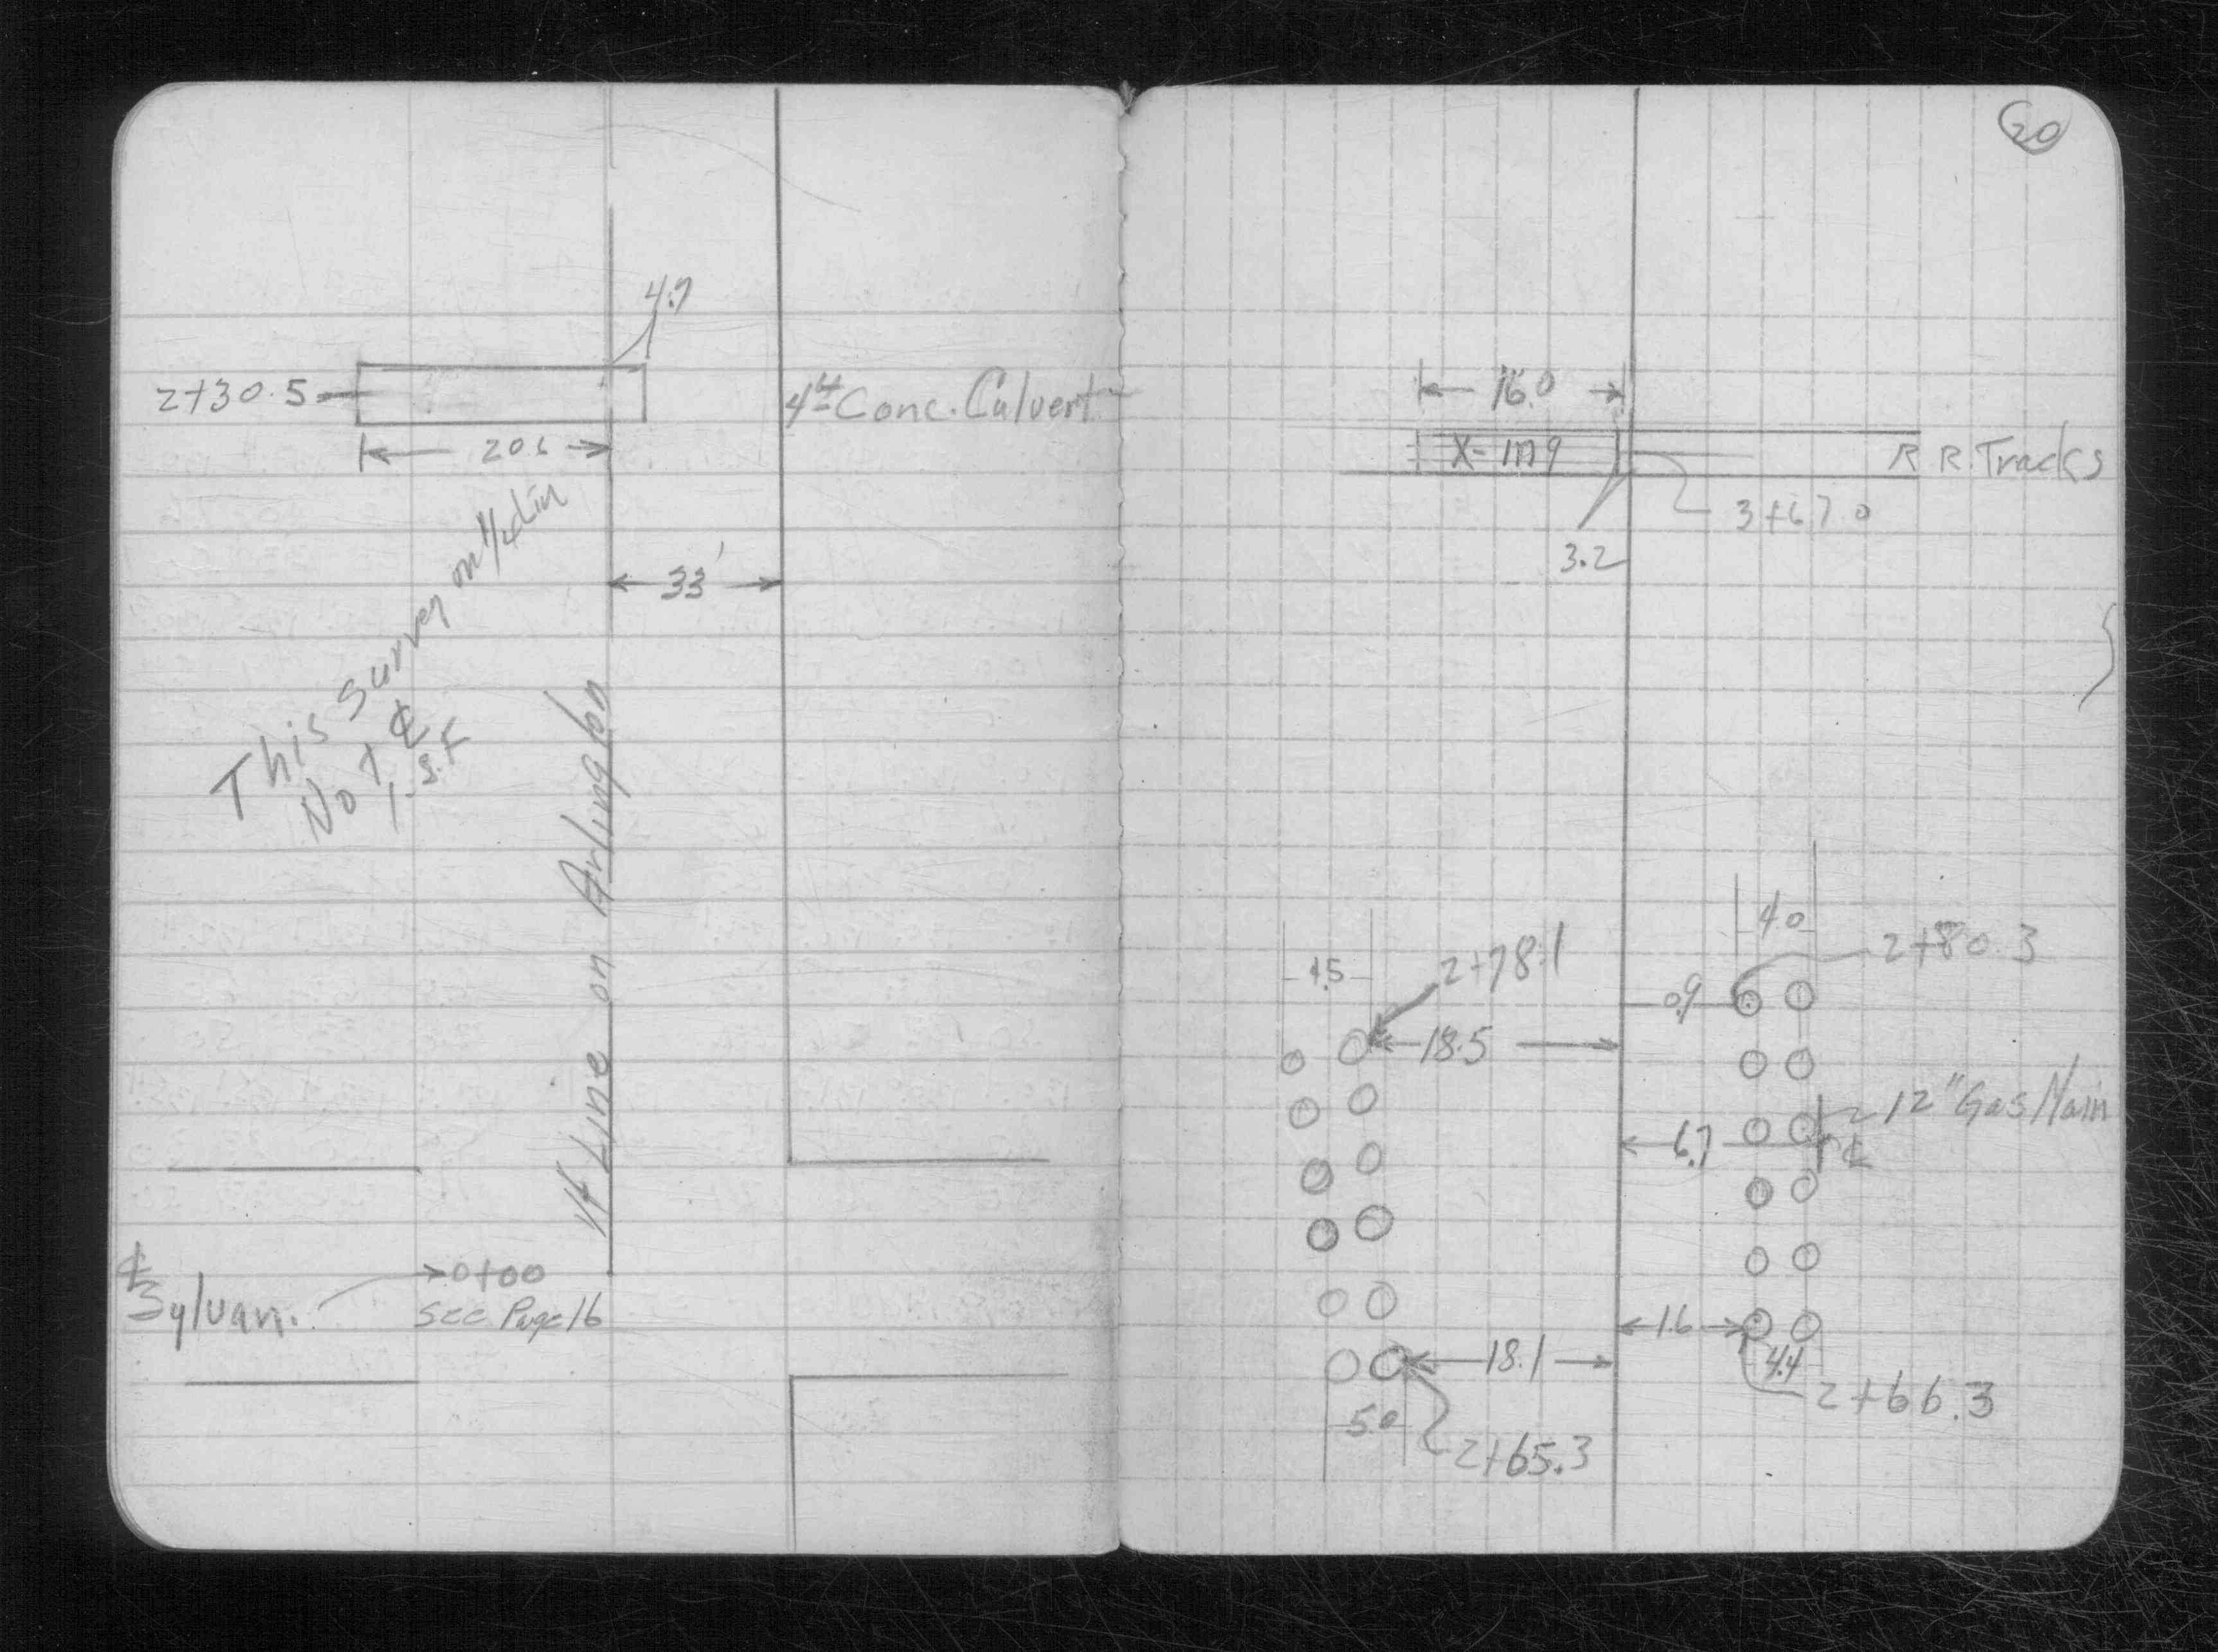 4.7
2+30.5
4" Conc. Culvert
20.6
33'
This Survey on 1/4 Lin
Not ℄
1-S.F
1/4 Line on Arlington
℄
Sylvan.
0+00
See Page 16
20
16.0
X-ing
R R. Tracks
3+67.0
3.2
4.0
2+80.3
4.5
2+78.1
0.9
18.5
12" Gas Main
6.7
℄
1.6
18.1
4.4
2+66.3
5.0
2+65.3